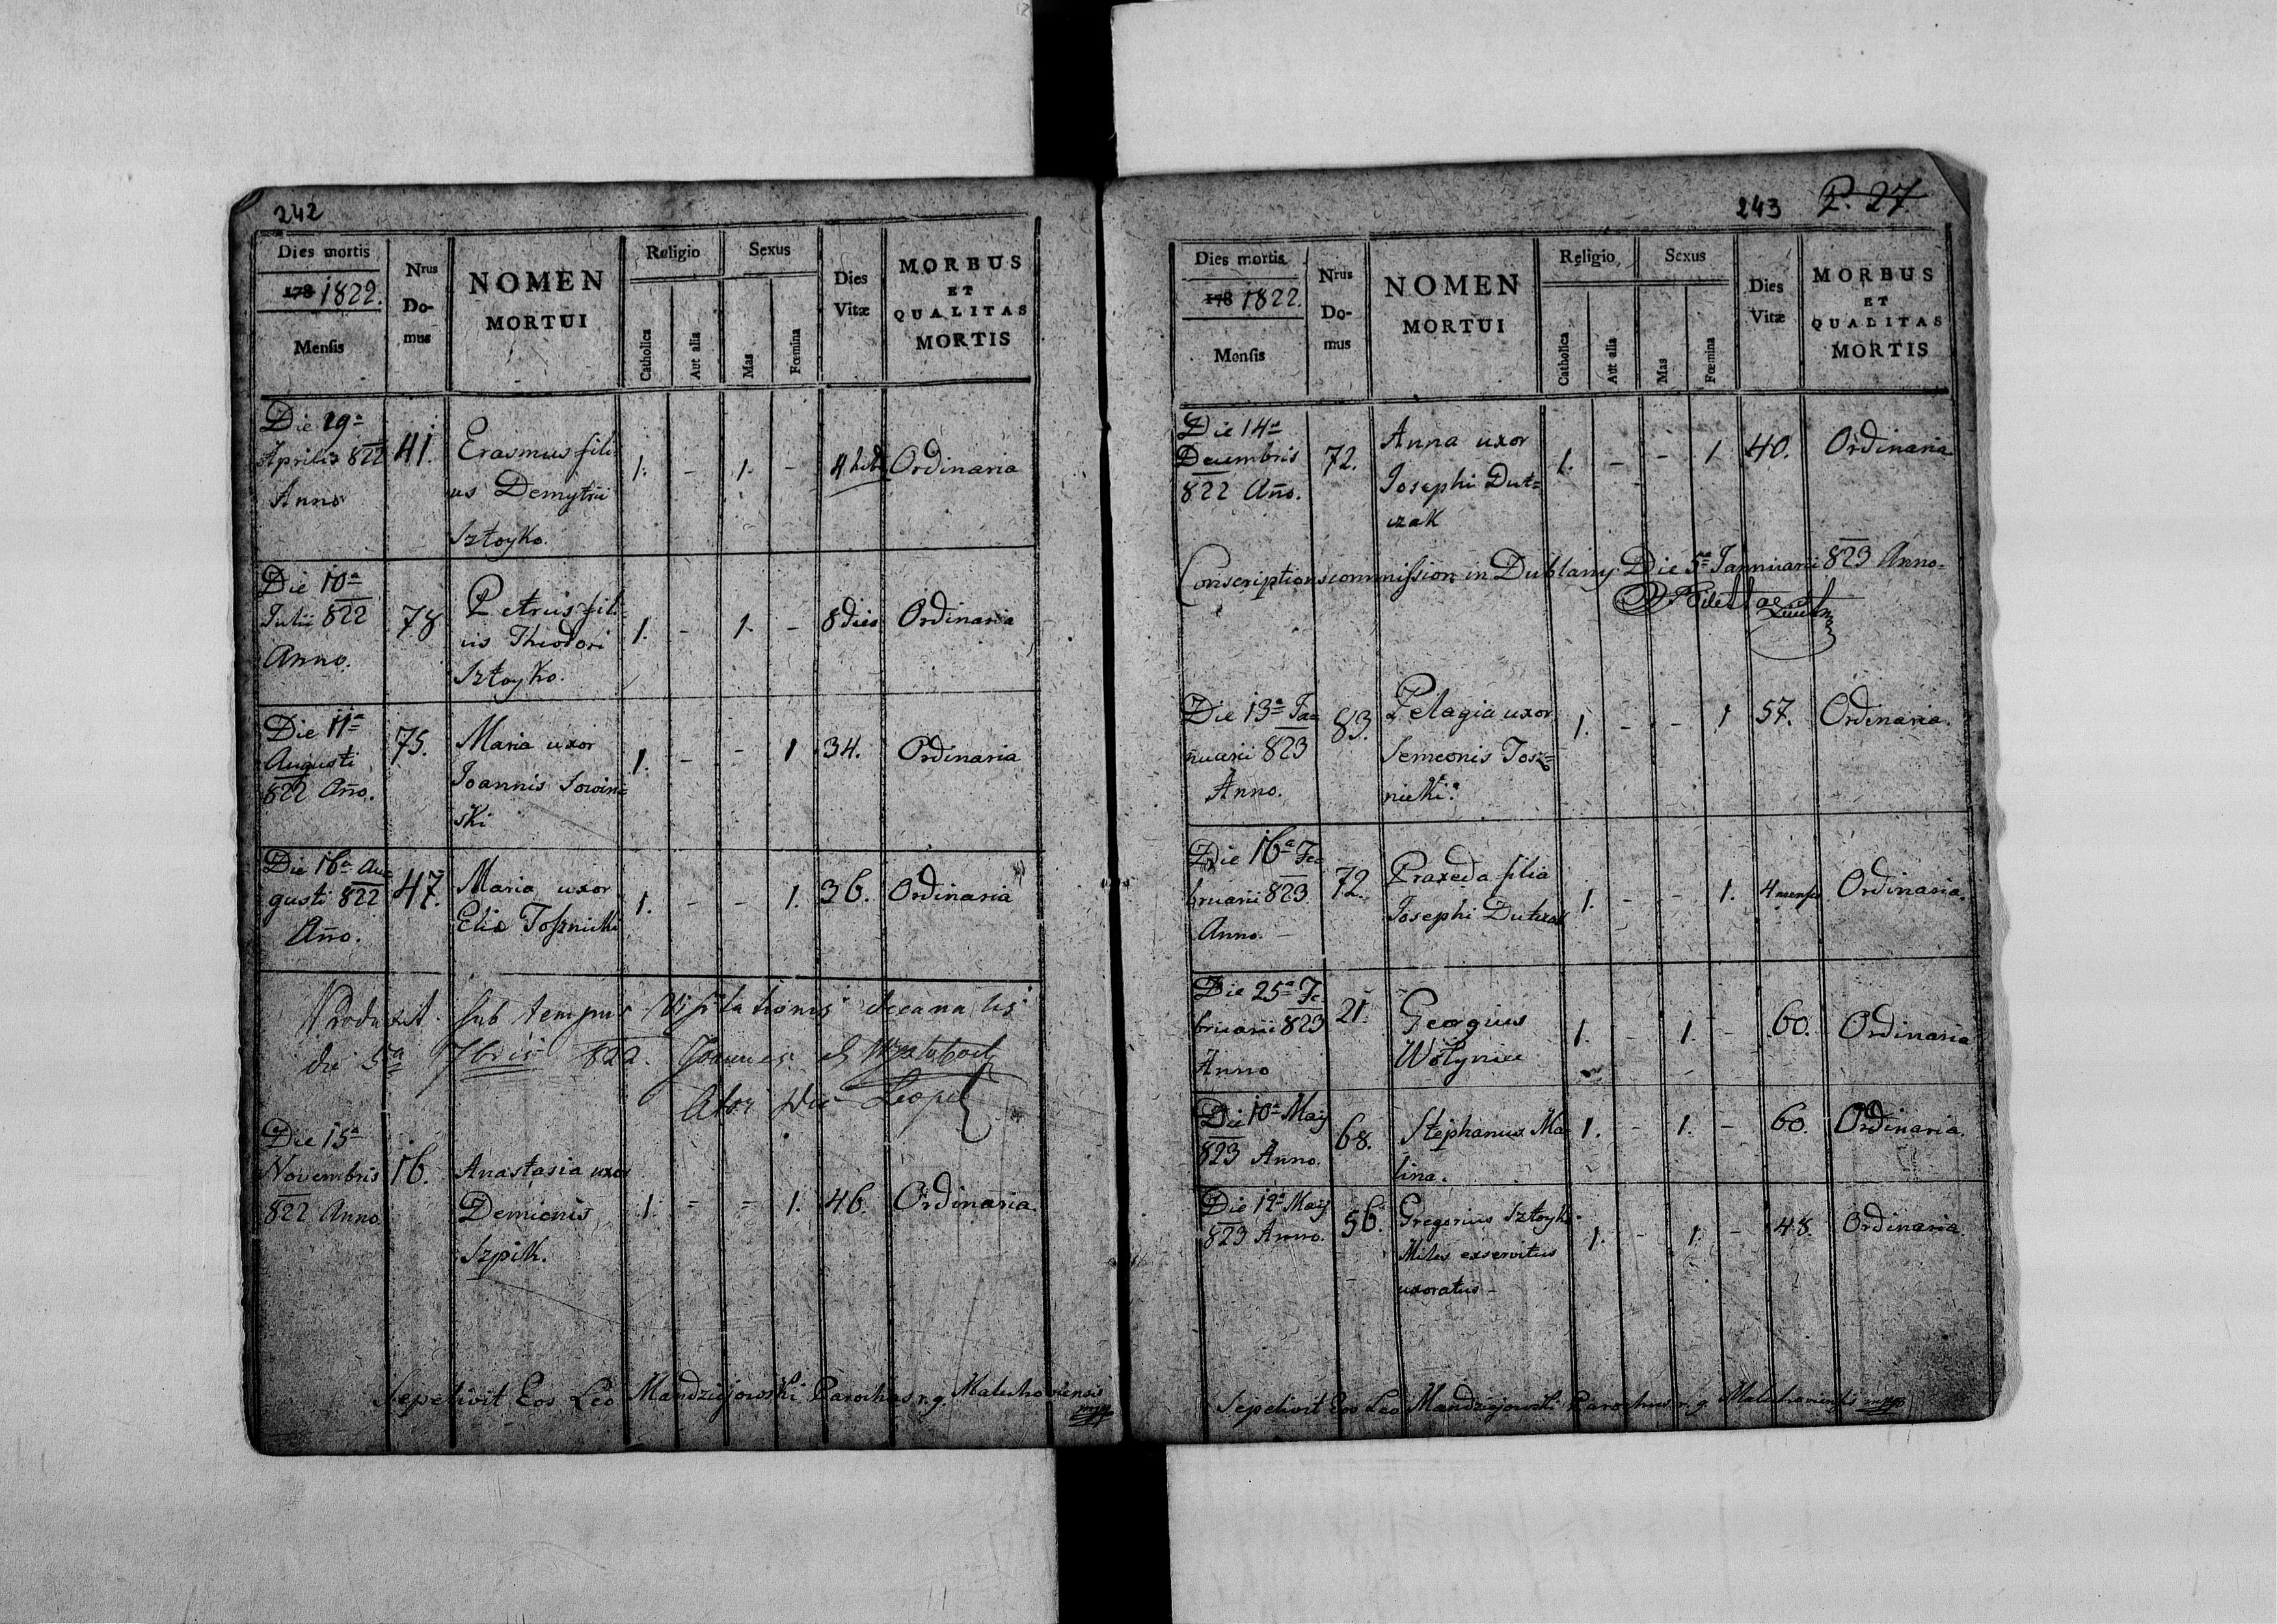 242
Dies mortis
178 1822.
Mensis
Nrus
Do-
mus
NOMEN
MORTUI
Religio
Catholica
Aut alia
Sexus
Mas
Fœmina
Dies
Vitæ
MORBUS
ET
QUALITAS
MORTIS
Die 29a
Aprilis 822
Anno
41.
Erasmus fili
us Demytrii
Sztoyko.
1. - 1. - 4 Ordinaria
Die 10a
Julii 822
Anno.
78
Petrus fili=
us Theodori
Sztoyko.
1. - 1. - 8 dies Ordinaria
Die 11a
Augusti
822 Año.
75.
Maria uxor
Joannis Sowin=
ski
1. - - 1 34. Ordinaria
Die 16a Au=
gusti 822
Año.
47.
Maria uxor
Eliæ Toßnicki
1. - - 1. 36. Ordinaria
Produxit sub tempus Visitationis decanalis
die 5a 7bris 822. Joannes
Die 15a
Novembris
822 Anno
16.
Anastasia uxor
Demienis
Szpik.
1. = = 1. 46. Ordinaria
Sepelivit Eos Leo Mandziejowski Parochus r. g. Malechoviensis
mpp
243 P. 27
Dies mortis
178 1822.
Mensis
Nrus
Do-
mus
NOMEN
MORTUI
Religio
Catholica
Aut alia
Sexus
Mas
Fœmina
Dies
Vitæ
MORBUS
ET
QUALITAS
MORTIS
Die 14a
Decembris
822 Año.
72.
Anna uxor
Josephi Dut=
czak
1. - - 1 40. Ordinaria
Conscriptionscommission in Dublany Die 5ta Januarii 823 Anno=
Die 13a Ja=
nuarii 823
Anno.
83.
Pelagia uxor
Semeonis Tosz=
nicki.
1. - - 1 57. Ordinaria.
Die 16a Fe=
bruarii 823
Anno. -
72.
Praxeda filia
Josephi Dutczak
1. - - 1. 4 menses Ordinaria.
Die 25a Fe=
bruarii 823
Anno
21.
Georgius
Wołyniec
1. - 1. - 60. Ordinaria
Die 10a Maij
823 Anno.
68.
Stephanus Ma=
lina.
1. - 1. - 60. Ordinaria.
Die 19a Maij
823 Anno.
56.
Gregorius Sztoyko
Miles exservitus
uxoratus -
1. - 1. - 48. Ordinaria
Sepelivit Eos Leo Mandziejowski Parochus r. g. Malechoviensis mpp